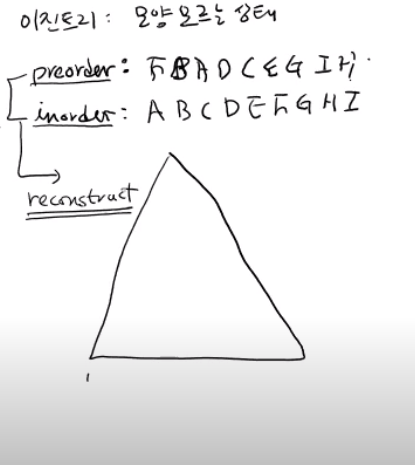 이진트리: 모양 모르는 상태
preorder: F B A D C E G I H
inorder: A B C D E F G H I
reconstruct